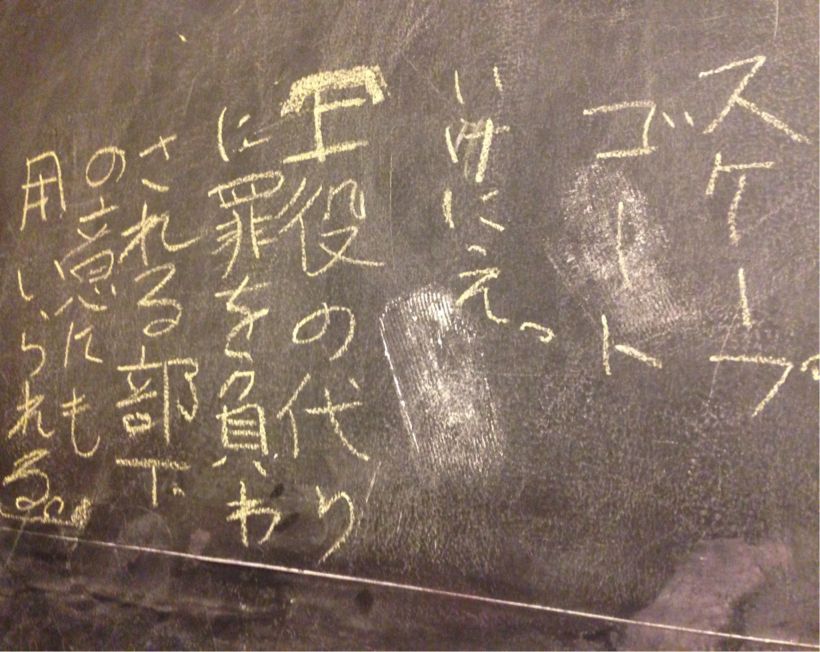 スケープ
ゴート
いけにえ。
「上役の代り
に罪を負わ
される部下
の意にも
用いられる。」